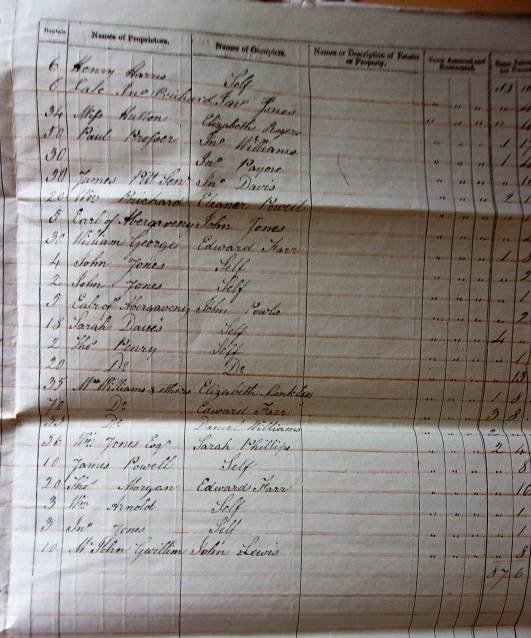 Rentals Names of Proprietors. Names of Occupiers. Names or Description of Estates or Property. Sums Assessed and Exonerated.
6 Henry Harris Self
6 Jno Prichard Jno Jones
34 Miss Hutton Elizabeth Rogers
50 Paul Prosser Jno Williams
30 Jno Payne
30 James Pitt Senr Jno Davis
20 Wm Prichard Eleanor Powell
5 Earl of Abergaveny John Jones
30 William Georges Edward Farr
4 John Jones Self
2 John Jones Self
5 Earl of Abergaveny John Powls
18 Sarah Davies Self
2 Thos Penry Self
20 Do Do
35 Mrs Williams & others Elizabeth Monklen
70 Do Edward Farr
35 Do Daniel Williams
56 Wm Jones Esqr Sarah Phillips
10 James Powell Self
20 Thos Morgan Edward Farr
3 Wm Arnold Self
3 Jno Jones Self
10 Mr John Gwillim John Lewis
87 6